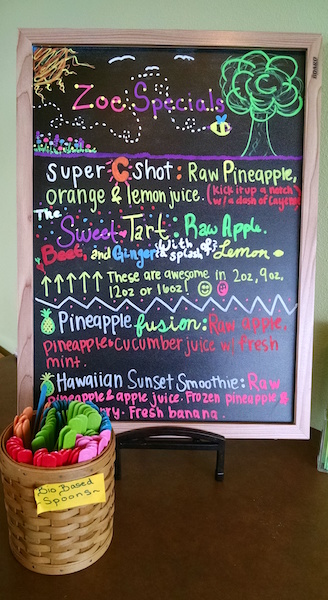 Zoe Specials
Super C Shot: Raw Pineapple,
orange & lemon juice. (kick it up a notch
w/ a dash of Cayenne)
The
Sweet Tart: Raw Apple,
Beet, and Ginger with a splash of Lemon
These are awesome in 2oz, 9oz,
12oz or 16oz!
Pineapple fusion: Raw apple,
pineapple & cucumber juice w/ fresh
mint.
Hawaiian Sunset Smoothie: Raw
Pineapple & apple juice. Frozen pineapple &
rry. Fresh banana.
Bio Based
Spoons